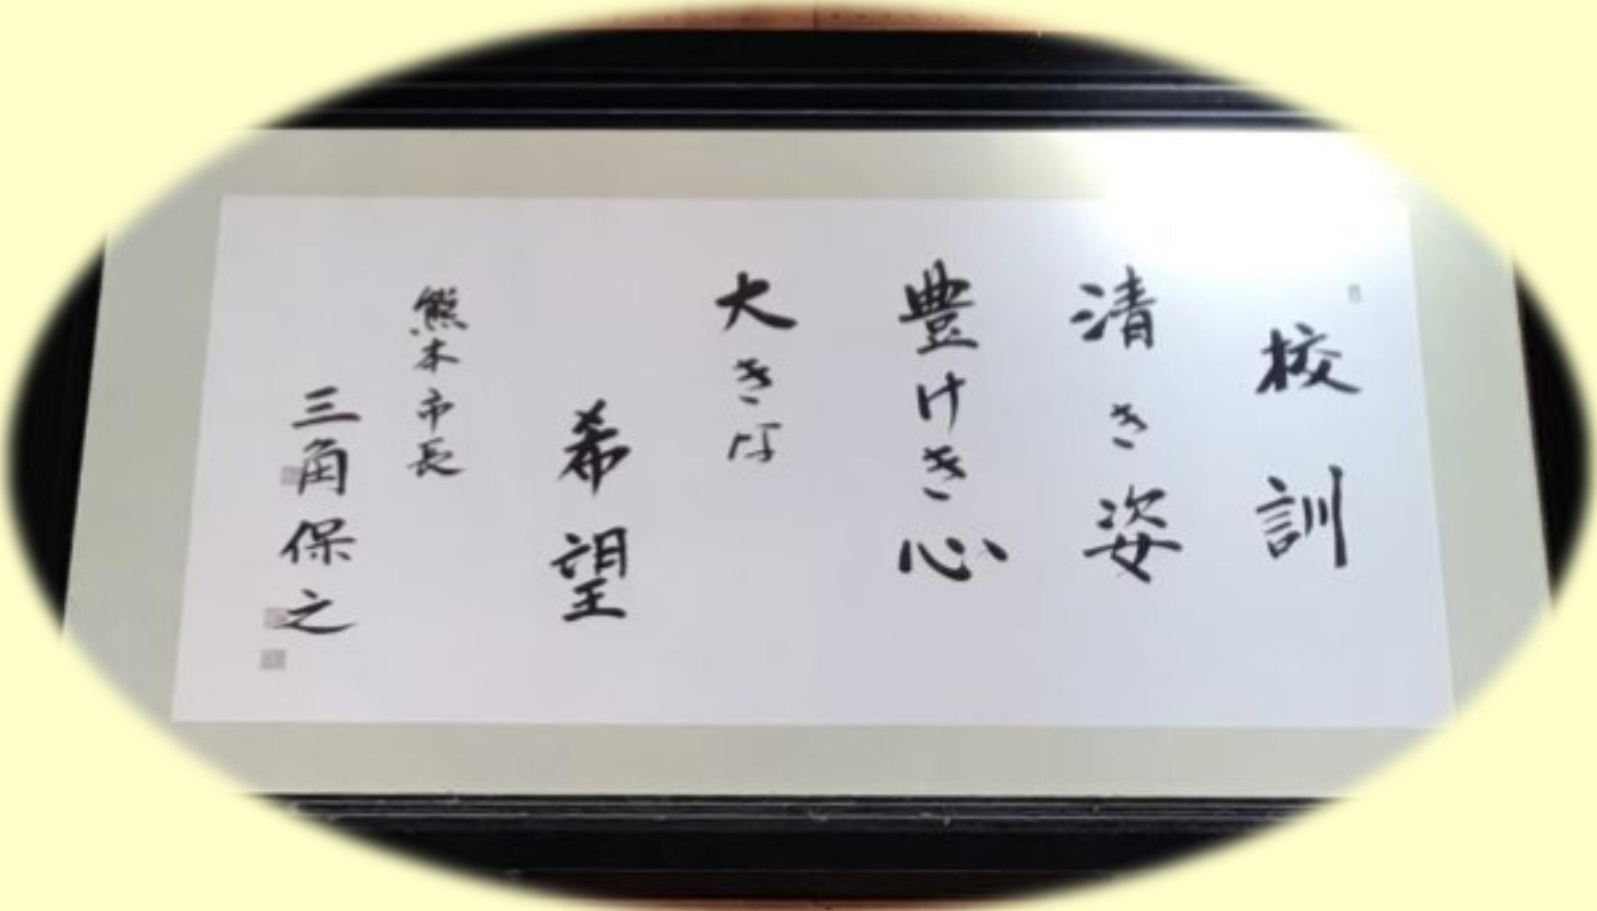 校訓
清き姿
豊けき心
大きな
希望
熊本市長
三角保之